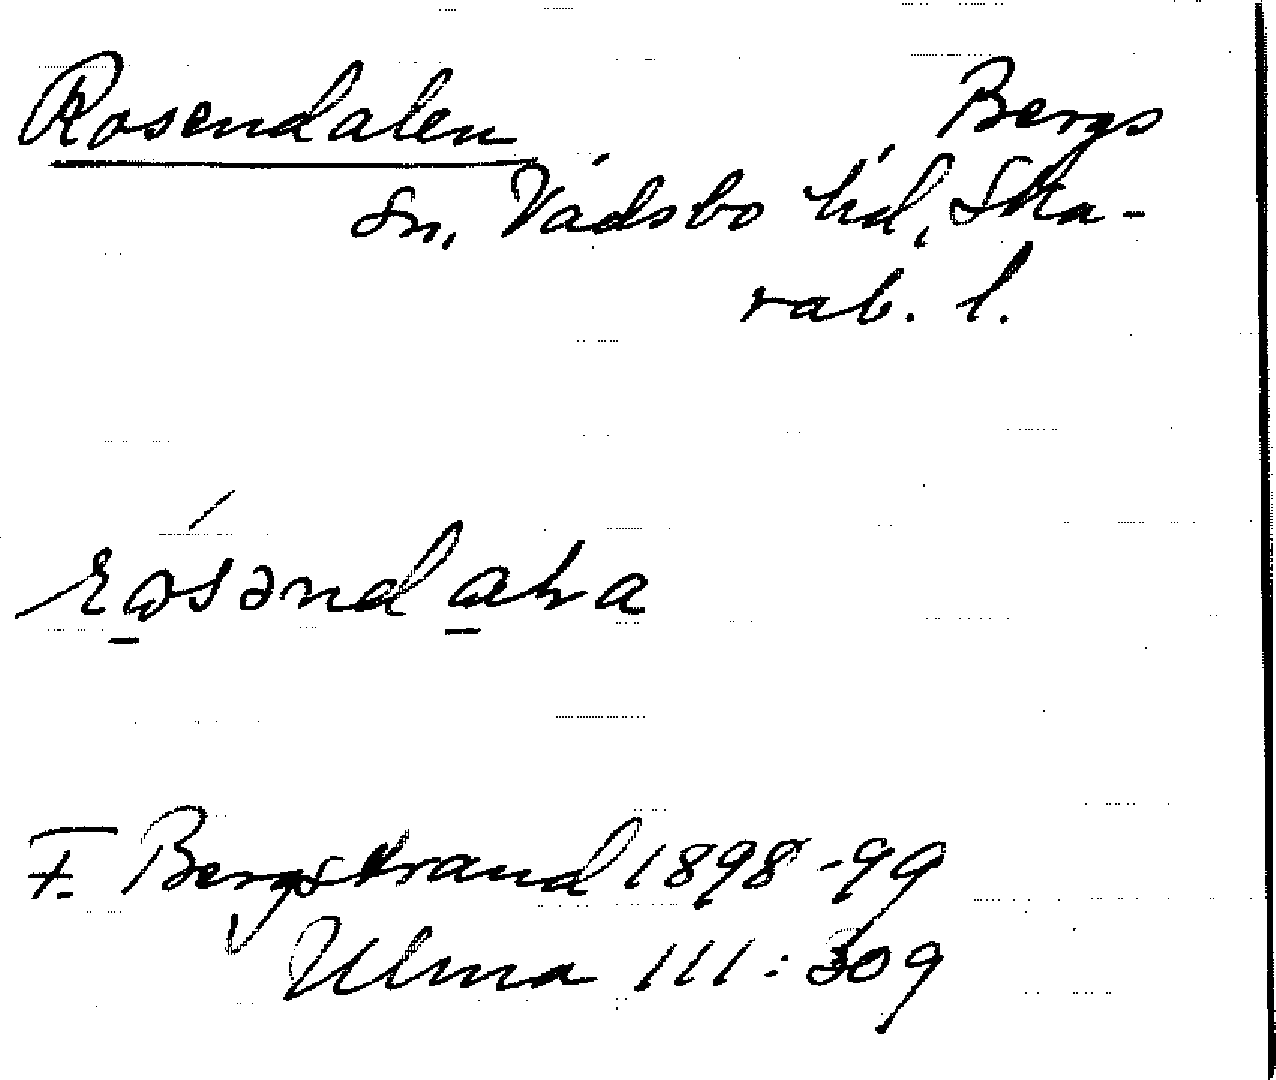 Rosendalen Bergs
sn, Vadsbo hd, Ska-
rab. l.
F. Bergstrand 1898-99
Ulma 111:309